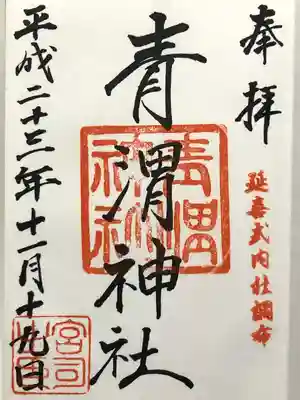 奉拝
延喜式内社調布
青渭神社
青渭神社
平成二十三年十一月十九日
宮司